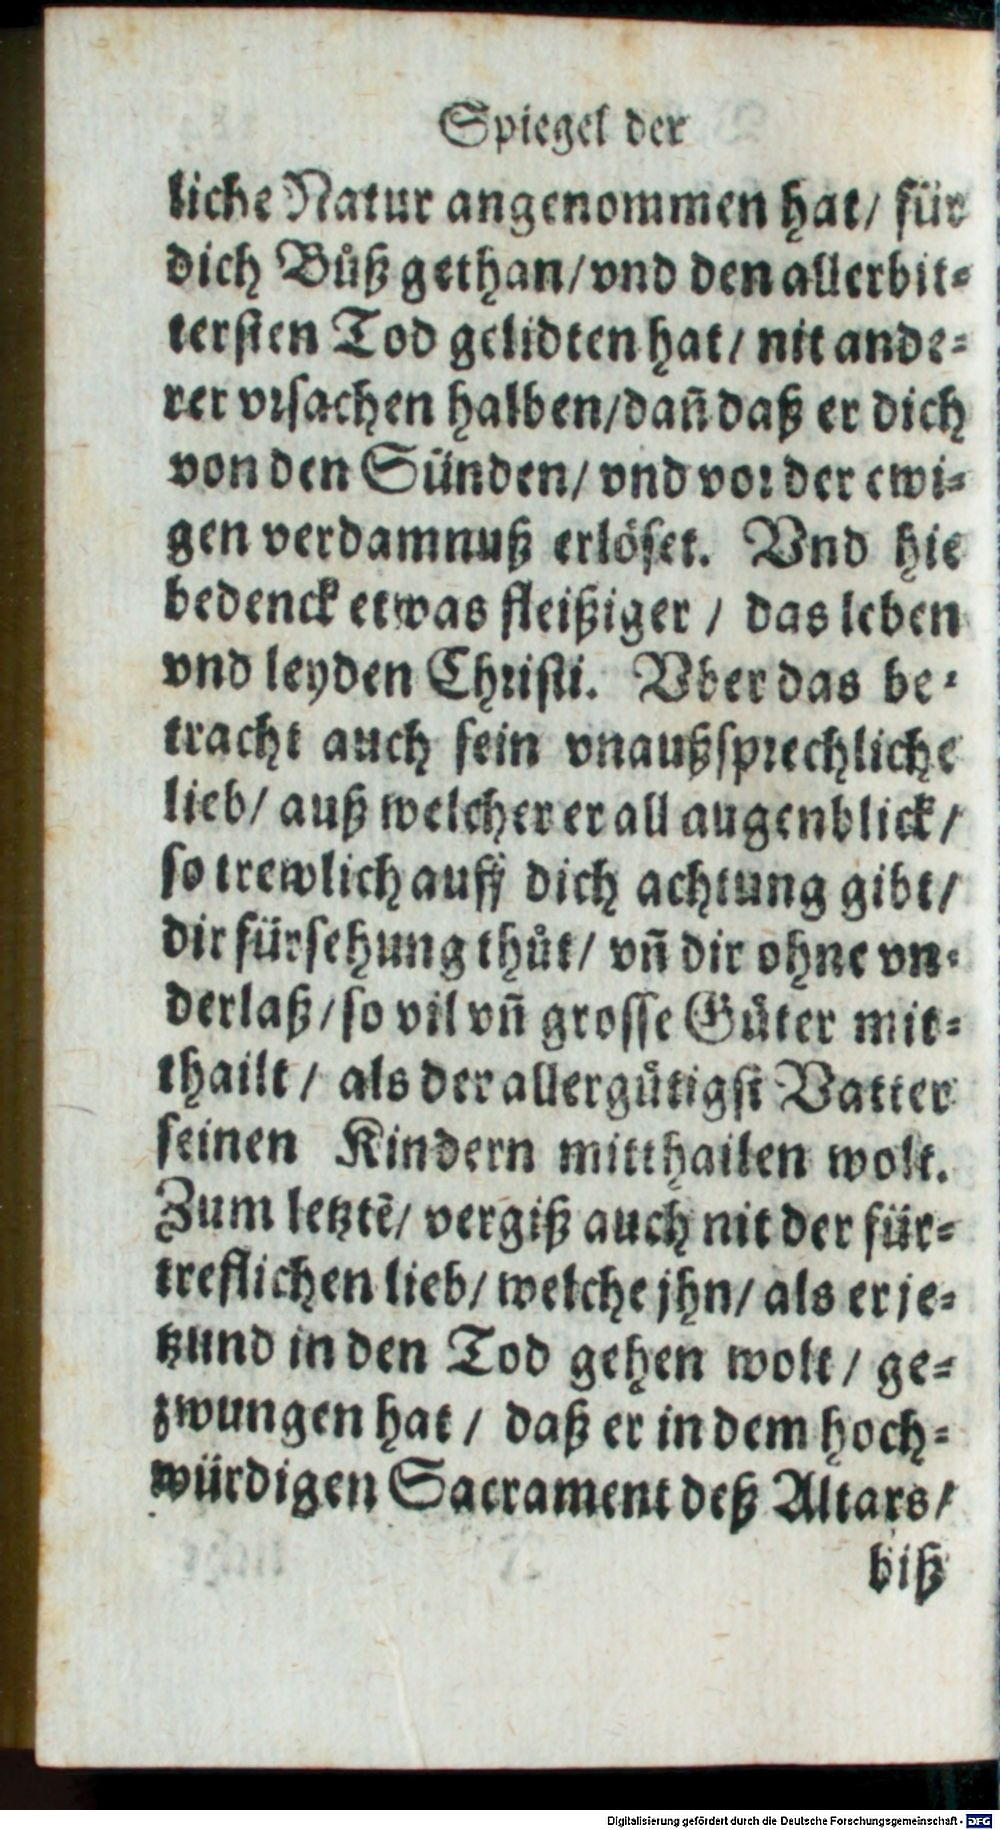 Spiegel der
liche Natur angenommen hat/ für
dich Bůß gethan/ vnd den allerbit-
tersten Tod gelidten hat/ nit ande-
rer vrsachen halben/ dañ daß er dich
von den Sünden/ vnd vor der ewi-
gen verdamnuß erlöset. Vnd hie
bedenck etwas fleißiger / das leben
vnd leyden Christi. Vber das be-
tracht auch sein vnaußsprechliche
lieb/ auß welcher er all augenblick/
so trewlich auff dich achtung gibt/
dir fürsehung thůt/ vñ dir ohne vn-
derlaß/ so vil vñ grosse Gůter mit-
thailt / als der allergůtigst Vatter
seinen Kindern mitthailen wolt.
Zum letztẽ/ vergiß auch nit der für-
treflichen lieb/ welche jhn/ als er je-
tzund in den Tod gehen wolt / ge-
zwungen hat / daß er in dem hoch-
würdigen Sacrament deß Altars/
biß
Digitalisierung gefördert durch die Deutsche Forschungsgemeinschaft - DFG